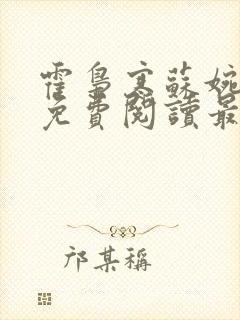 霍梟寒蘇婉
免費閱讀最
邝某稱